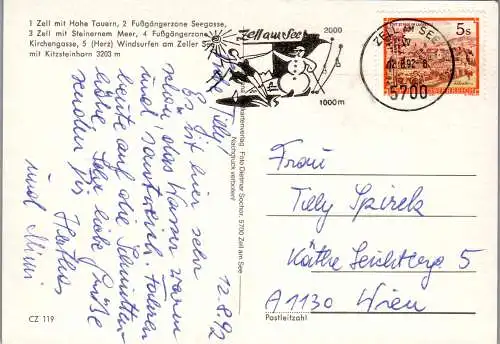 1 Zell mit Hohe Tauern, 2 Fußgängerzone Seegasse,
3 Zell mit Steinernem Meer, 4 Fußgängerzone
Kirchengasse, 5 (Herz) Windsurfen am Zeller
mit Kitzsteinhorn 3203 m
Zell am See
2000
1000 m
ZELL AM SEE
.8.92-8
5700
5 S
REPUBLIK ÖSTERREICH
12.8.92
Tilly!
Es ist hier sehr
schön, das Wasser warm
und
heute auf die Schmitten
höhe. Sehr liebe Grüße
senden Dir
Herthas
und Mimi
Foto Dietmar Sochor, 5700 Zell am See
Nachdruck verboten!
Frau
Tilly Spirek
Käthe Leichterg. 5
A 1130 Wien
Postleitzahl
CZ 119